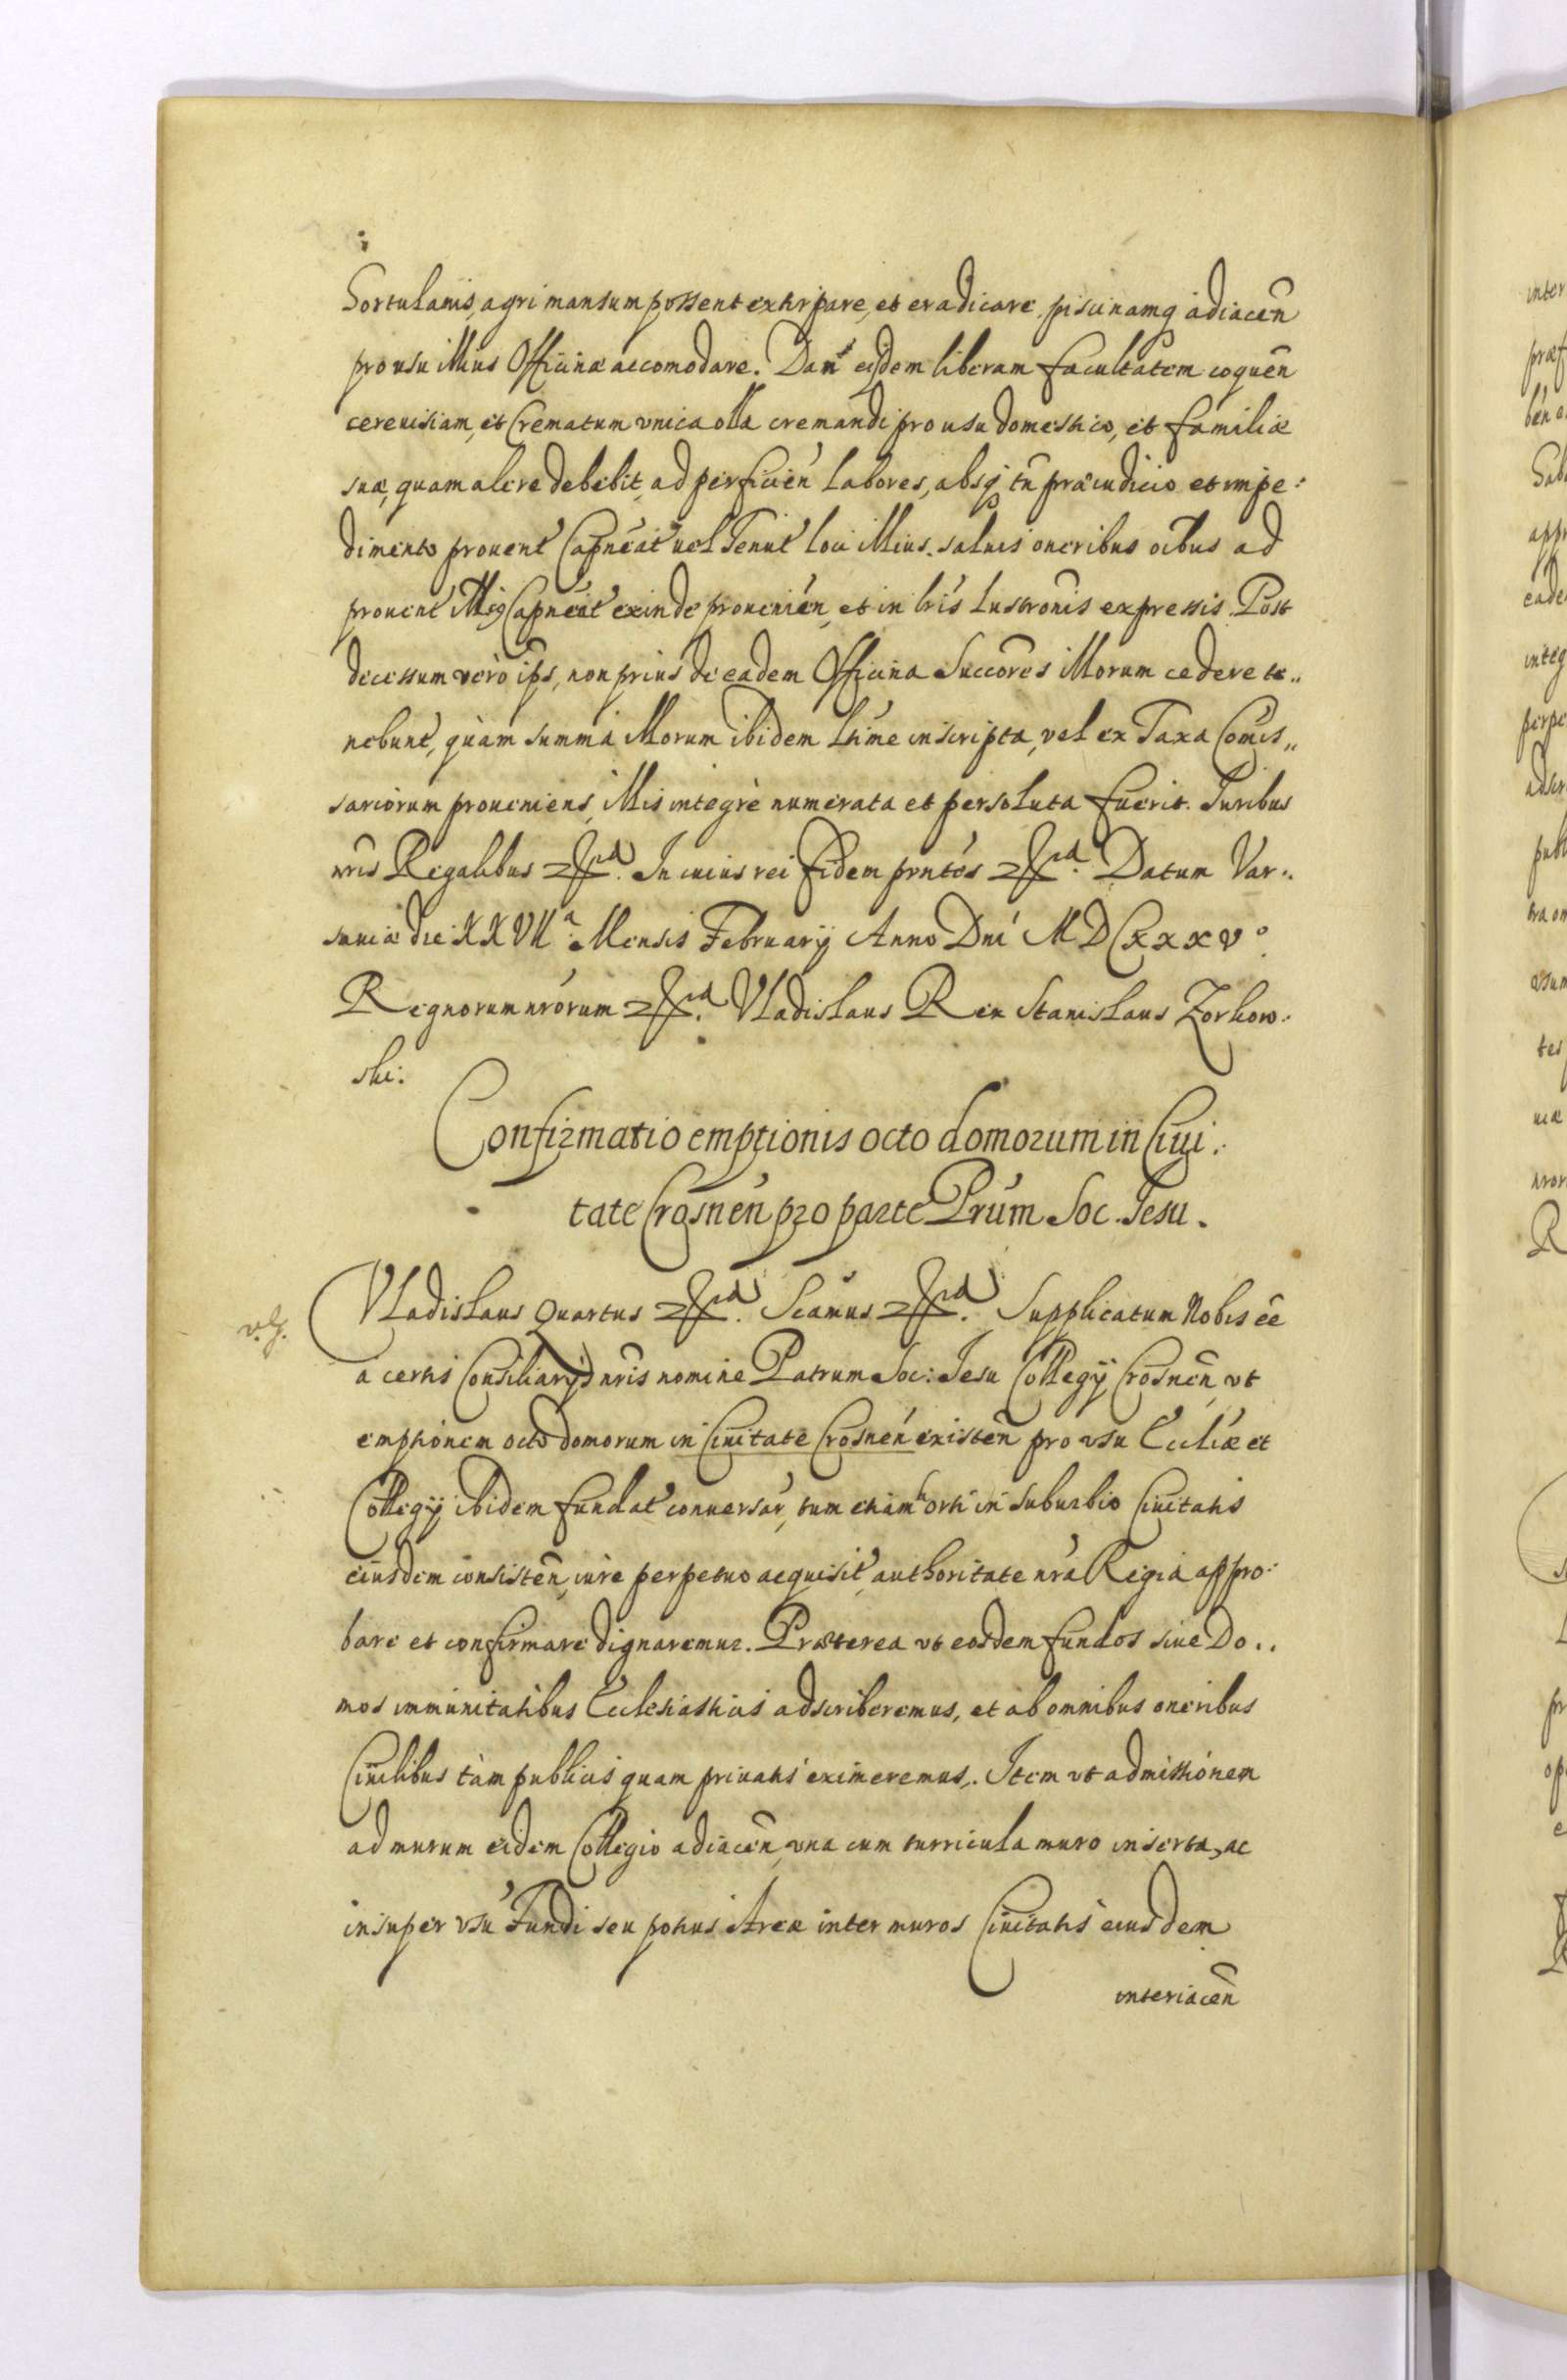 Hortulanis, agri mansum possent extirpare, et eradicare, piscinamq adiacen̄
pro usu illius Officinæ accomodare. Dan̄ eisdem liberam facultatem coquen̄
cereuisiam, et Crematum vnica olla cremandi pro usu domestico, et familiæ
suæ, quam alere debebit, ad perficien̄ Labores, absq tn̄ præiudicio et impe:
dimento prouent Capnēāt uel Tenut loci illius. saluis oneribus oībus ad
prouent illig Capnēāt exinde prouenien̄, et in lrīs Lustronīs expressis. Post
decessum vero ips, non prius de eadem Officina Succōres illorum cedere te„
nebunt, quàm summa illorum ibidem lti̅me inscripta, vel ex Taxa Com̄is„
sariorum proueniens, illis integrè numerata et persoluta fuerit. Iuribus
nrīs Regalibus etc. In cuius rei fidem pn̄tes etc. Datum Var..
sauiæ die XXVIIa. Mensis Februarij Anno Dnī MDCxxxvo.
Regnorum nrōrum etc. Vladislaus Rex Stanislaus Zorkow.
ski.
Confirmatio emptionis octo domorum in Ciui:
tate Crosnen̄ pro parte Prūm Soc. Iesu.
Vladislaus Quartus etc. Scāmus etc. Supplicatum Nobis ēē
a certis Consiliarijs nrīs nomine Patrum Soc: Iesu Collegij Crosnen̄, vt
emptionem octo domorum in Ciuitate Crosnen̄ existen̄ pro vsu Eccliæ et
Collegij ibidem fundat conuersar̄, tum etiam horti in suburbio Ciuitatis
eiusdem consisten̄, iure perpetuo acquisit, authoritate nr̄a Regia appro:
bare et confirmare dignaremur. Præterea vt eosdem fundos siue Do..
mos immunitatibus Ecclesiasticis adscriberemus, et ab omnibus oneribus
Ciuilibus tàm publicis quam priuatis eximeremus. Item vt admissionem
ad murum eidem Collegio adiacen̄, vna cum turricula muro inserta, ac
insuper vsū Fundi seu potius Areæ inter muros Ciuitatis eiusdem
interiacen̄